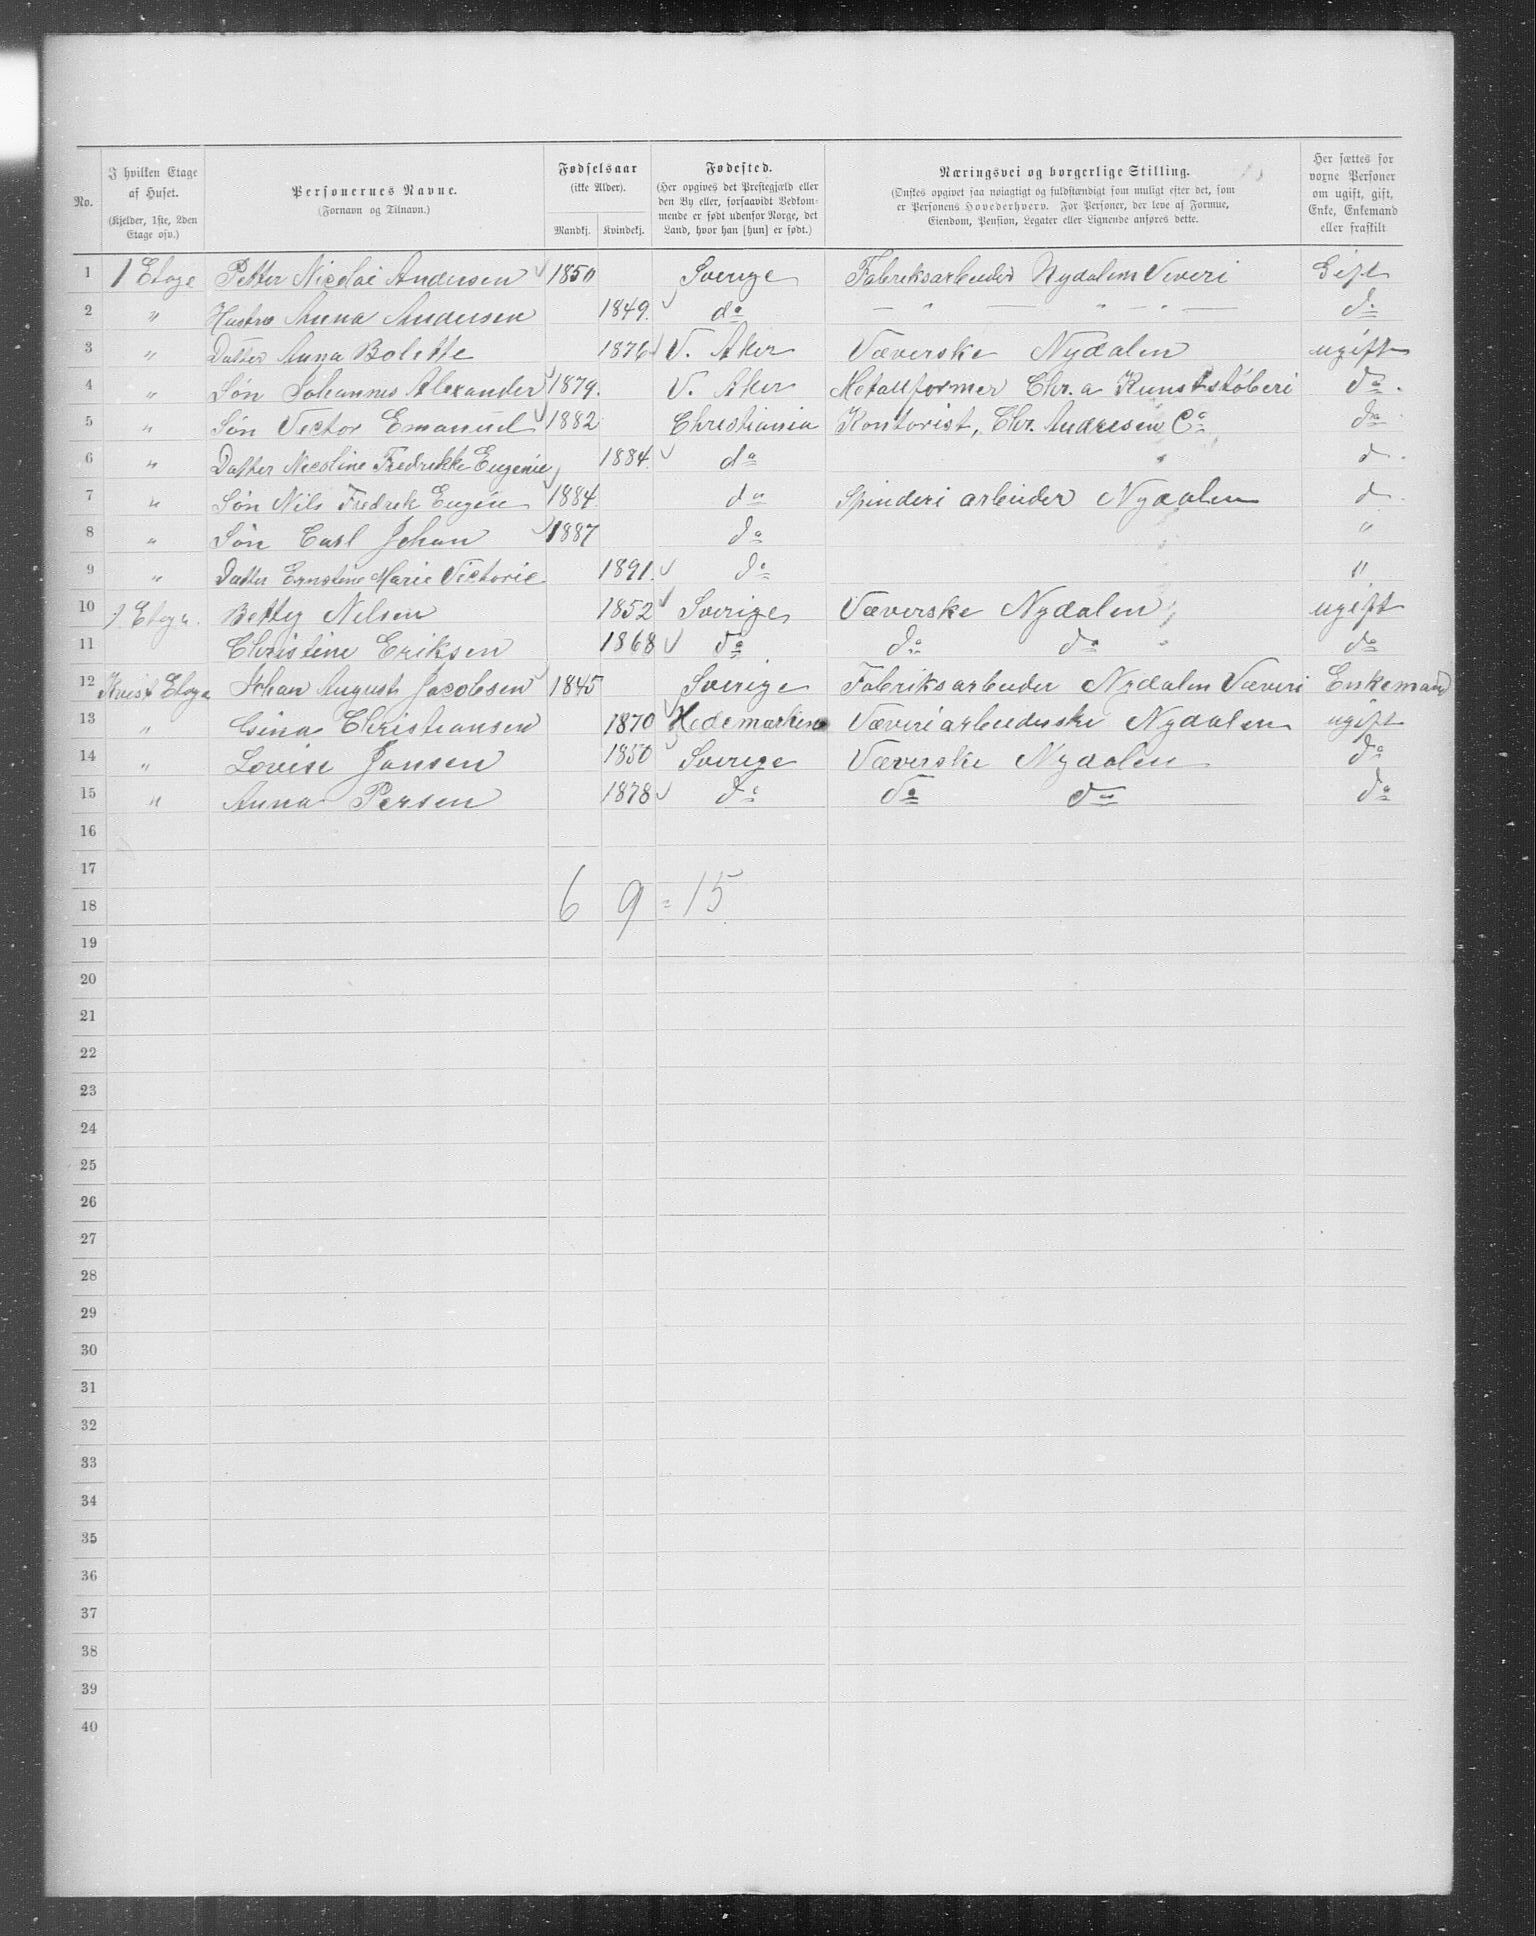 No.
I hvilken Etage af Huset.
(Kjelder, 1ste, 2den Etage osv.)
Personernes Navne.
(Fornavn og Tilnavn.)
Fødselsaar
(ikke Alder).
Mandkj. Kvindekj.
Fødested.
(Her opgives det Præstegjæld eller
den By eller, forsaavidt Vedkom-
mende er født udenfor Norge, det
Land, hvor han [hun] er født.)
Næringsvei og borgerlige Stilling.
(Ønskes opgivet saa nøiagtigt og fuldstændigt som muligt efter det, som
er Personens Hovederhverv. For Personer, der leve af Formue,
Eiendom, Pension, Legater eller Lignende anføres dette.
Her sættes for
voxne Personer
om ugift, gift,
Enke, Enkemand
eller fraskilt
1 1 Etage Petter Nicolai Andersen 1850 Sverige Fabriksarbeider Nydalem Veveri Gift
2 " Hustro Anna Andersen 1849. do — " — " — " — do
3 " Datter Anna Bolette 1876 V. Aker Væverske Nydalen ugift
4 " Søn Johannes Alexander 1879. V. Aker Metallformer Chr.a Kunststøberi do.
5 " Søn Victor Emanuel 1882 Christiania Kontorist, Chr. Andresen Co. do
6 " Datter Nicoline Fredrikke Eugenie 1884. do d
7 " Søn Nils Fredrek Eugén 1884 do Spinderi arbeider Nydalen d
8 " Søn Carl Johan 1887 do "
9 " Datter Ernstine Marie Victorie 1891. do "
10 1. Etage. Betty Nilsen 1852 Sverige Væverske Nydalen ugift
11 Christine Eriksen 1868 do do do do
12 Kvist Etage Johan August Jacobsen 1845 Sverige Fabriksarbeider Nydalen Væveri Enkemand
13 " Gina Christiansen 1870 Hedemarken Væveriarbeiderske Nydalen ugift
14 " Lovise Jansen 1850 Sverige Væverske Nydalen do
15 " Anna Persen 1878 do do do do
16
17
18 6 9 = 15
19
20
21
22
23
24
25
26
27
28
29
30
31
32
33
34
35
36
37
38
39
40